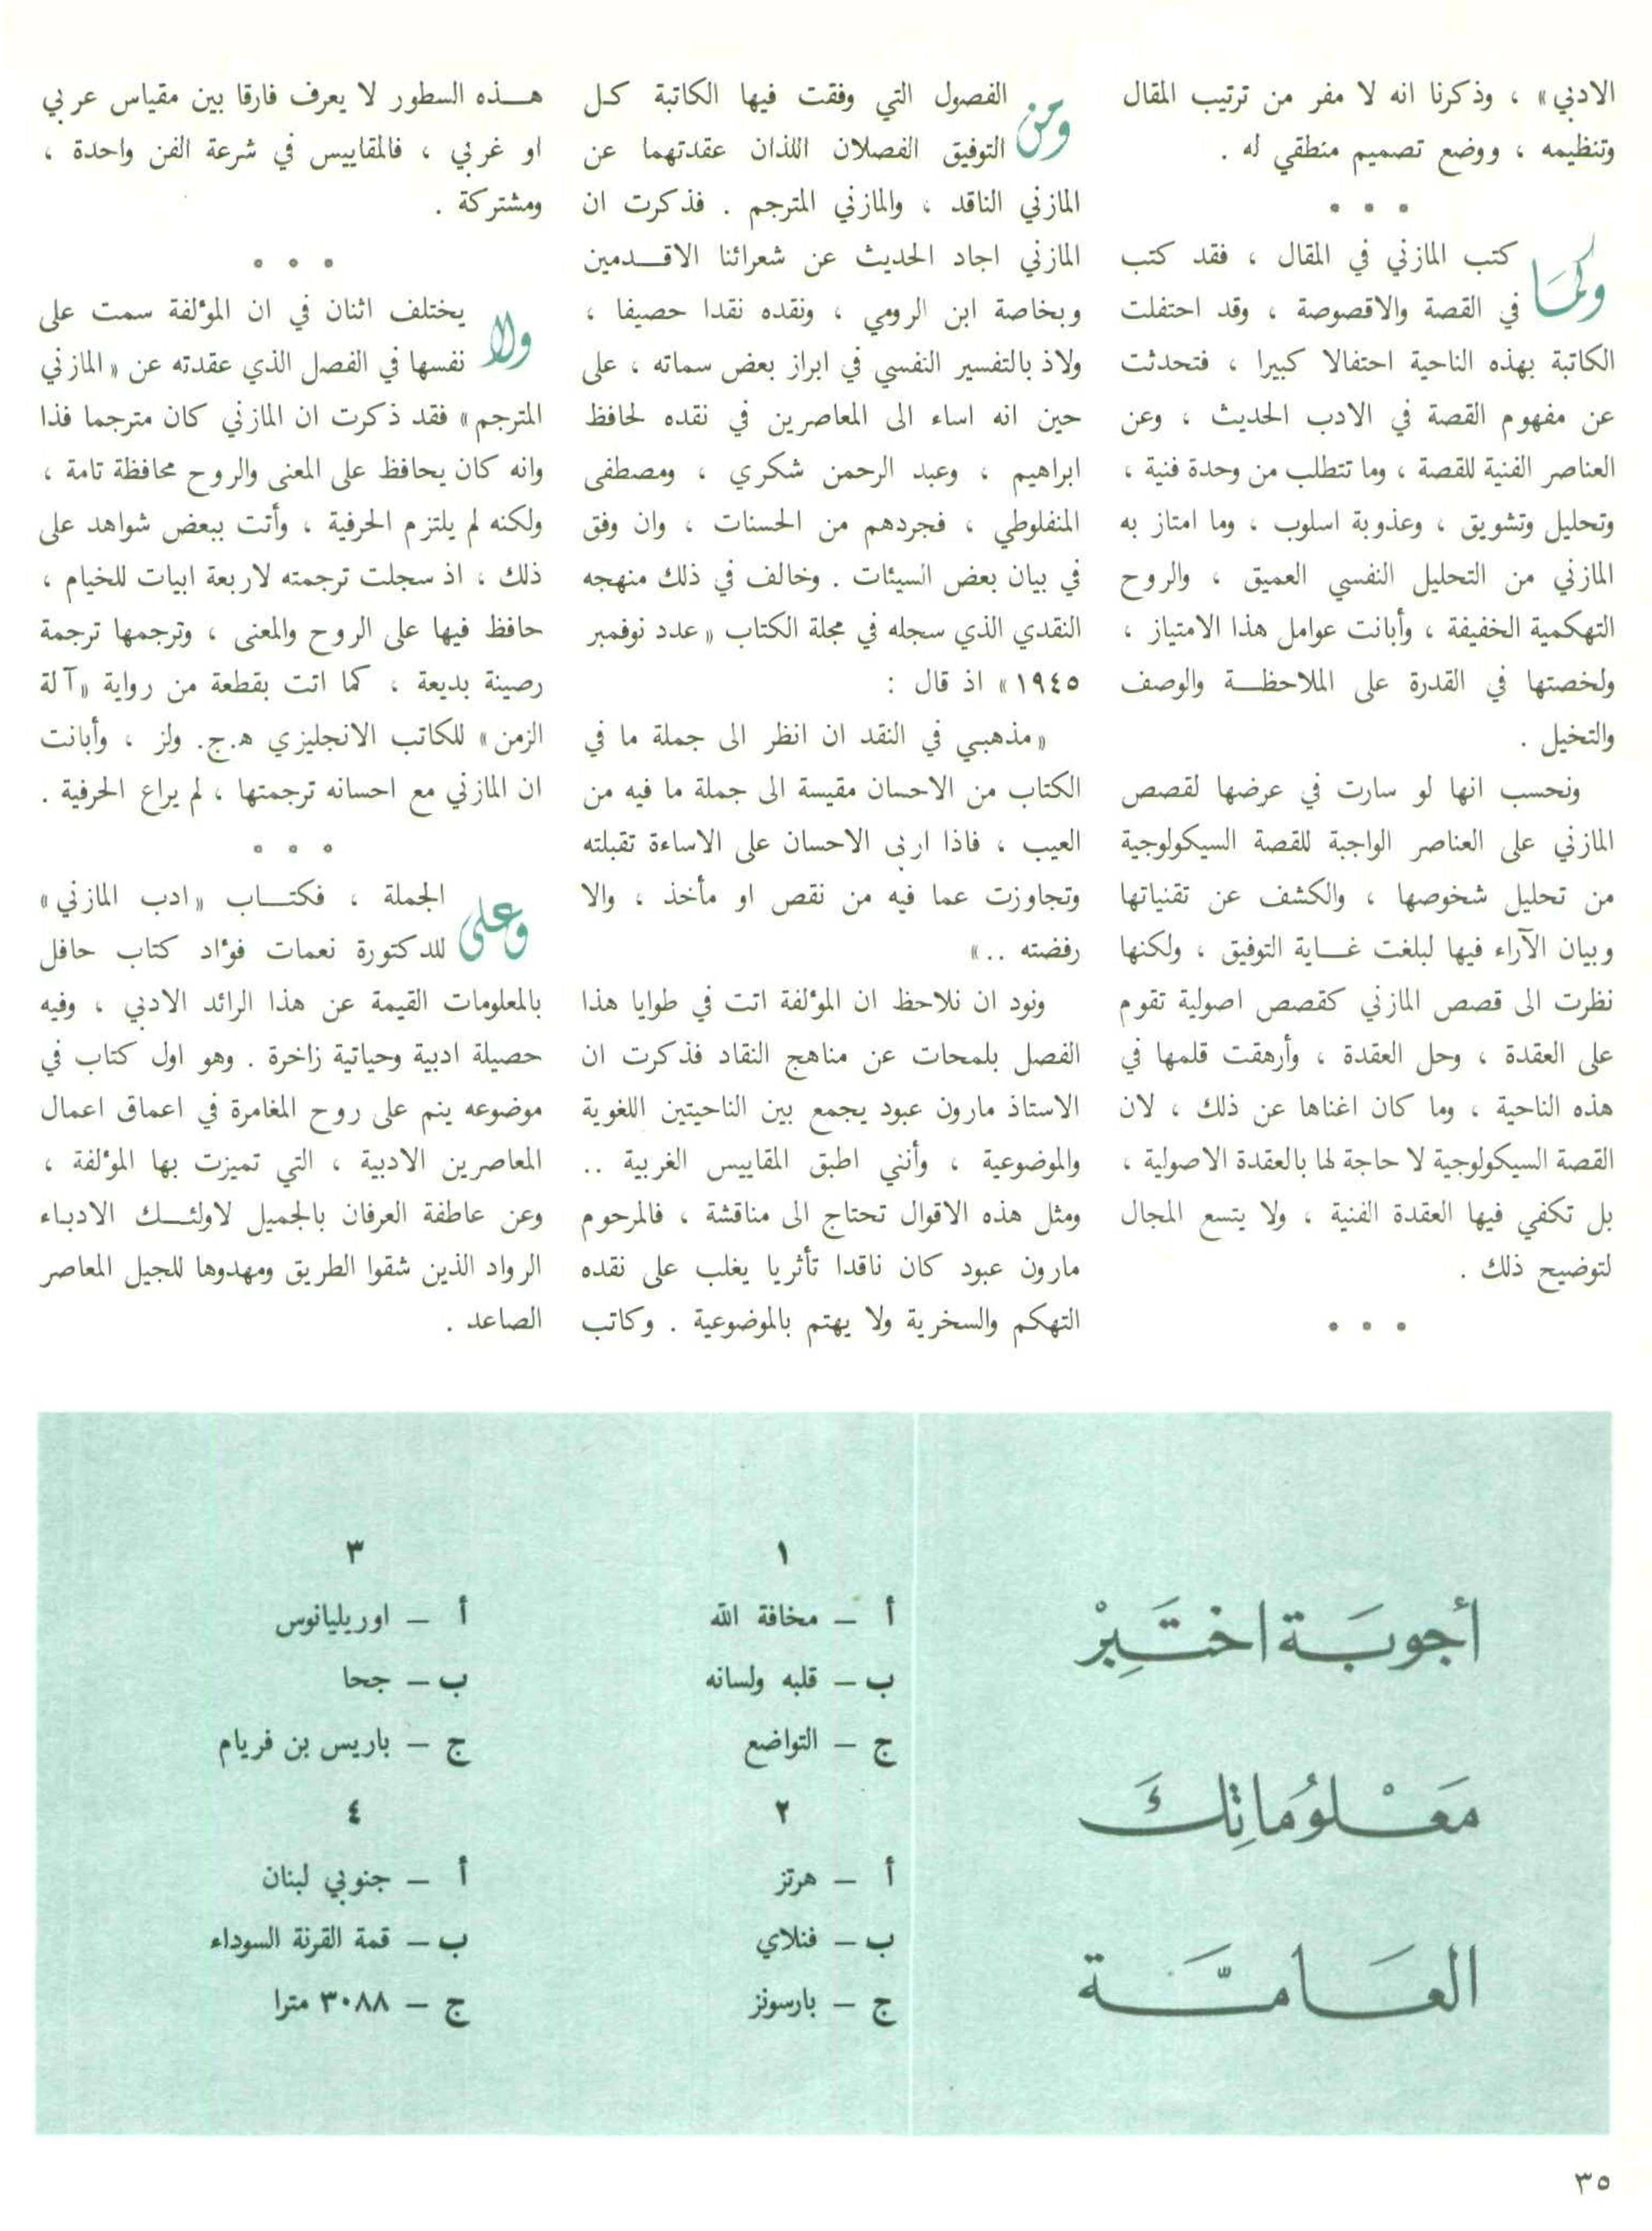 الادبي» ، وذكرنا انه لا مفر من ترتيب المقال
وتنظيمه ، ووضع تصميم منطقي له .
• • •
وكما كتب المازني في المقال ، فقد كتب
في القصة والاقصوصة ، وقد احتفلت
الكاتبة بهذه الناحية احتفالا كبيرا ، فتحدثت
عن مفهوم القصة في الادب الحديث ، وعن
العناصر الفنية للقصة ، وما تتطلب من وحدة فنية ،
وتحليل وتشويق ، وعذوبة اسلوب ، وما امتاز به
المازني من التحليل النفسي العميق ، والروح
التهكمية الخفيفة ، وأبانت عوامل هذا الامتياز ،
ولخصتها في القدرة على الملاحظــة والوصف
والتخيل .
ونحسب انها لو سارت في عرضها لقصص
المازني على العناصر الواجبة للقصة السيكولوجية
من تحليل شخوصها ، والكشف عن تقنياتها
وبيان الآراء فيها لبلغت غــاية التوفيق ، ولكنها
نظرت الى قصص المازني كقصص اصولية تقوم
على العقدة ، وحل العقدة ، وأرهقت قلمها في
هذه الناحية ، وما كان اغناها عن ذلك ، لان
القصة السيكولوجية لا حاجة لها بالعقدة الاصولية ،
بل تكفي فيها العقدة الفنية ، ولا يتسع المجال
لتوضيح ذلك .
• • •
ومن الفصول التي وفقت فيها الكاتبة كل
التوفيق الفصلان اللذان عقدتهما عن
المازني الناقد ، والمازني المترجم . فذكرت ان
المازني اجاد الحديث عن شعرائنا الاقــدمين
وبخاصة ابن الرومي ، ونقده نقدا حصيفا ،
ولاذ بالتفسير النفسي في ابراز بعض سماته ، على
حين انه اساء الى المعاصرين في نقده لحافظ
ابراهيم ، وعبد الرحمن شكري ، ومصطفى
المنفلوطي ، فجردهم من الحسنات ، وان وفق
في بيان بعض السيئات . وخالف في ذلك منهجه
النقدي الذي سجله في مجلة الكتاب «عدد نوفمبر
١٩٤٥» اذ قال :
«مذهبي في النقد ان انظر الى جملة ما في
الكتاب من الاحسان مقيسة الى جملة ما فيه من
العيب ، فاذا اربى الاحسان على الاساءة تقبلته
وتجاوزت عما فيه من نقص او مأخذ ، والا
رفضته ..»
ونود ان نلاحظ ان المؤلفة اتت في طوايا هذا
الفصل بلمحات عن مناهج النقاد فذكرت ان
الاستاذ مارون عبود يجمع بين الناحيتين اللغوية
والموضوعية ، وأنني اطبق المقاييس الغربية ..
ومثل هذه الاقوال تحتاج الى مناقشة ، فالمرحوم
مارون عبود كان ناقدا تأثريا يغلب على نقده
التهكم والسخرية ولا يهتم بالموضوعية . وكاتب
هــذه السطور لا يعرف فارقا بين مقياس عربي
او غربي ، فالمقاييس في شرعة الفن واحدة ،
ومشتركة .
• • •
ولا يختلف اثنان في ان المؤلفة سمت على
نفسها في الفصل الذي عقدته عن «المازني
المترجم» فقد ذكرت ان المازني كان مترجما فذا
وانه كان يحافظ على المعنى والروح محافظة تامة ،
ولكنه لم يلتزم الحرفية ، وأتت ببعض شواهد على
ذلك ، اذ سجلت ترجمته لاربعة ابيات للخيام ،
حافظ فيها على الروح والمعنى ، وترجمها ترجمة
رصينة بديعة ، كما اتت بقطعة من رواية «آلة
الزمن» للكاتب الانجليزي ه.ج. ولز ، وأبانت
ان المازني مع احسانه ترجمتها ، لم يراع الحرفية .
• • •
وعلى الجملة ، فكتــاب «ادب المازني»
للدكتورة نعمات فؤاد كتاب حافل
بالمعلومات القيمة عن هذا الرائد الادبي ، وفيه
حصيلة ادبية وحياتية زاخرة . وهو اول كتاب في
موضوعه ينم على روح المغامرة في اعماق اعمال
المعاصرين الادبية ، التي تميزت بها المؤلفة ،
وعن عاطفة العرفان بالجميل لاولئــك الادباء
الرواد الذين شقوا الطريق ومهدوها للجيل المعاصر
الصاعد .
أجوبَة اختَبِرْ
مَعْلوُمَاتِكَ
العَامَّة
١
أ – مخافة الله
ب – قلبه ولسانه
ج – التواضع
٢
أ – هرتز
ب – فنلاي
ج – بارسونز
٣
أ – اوريليانوس
ب – جحا
ج – باريس بن فريام
٤
أ – جنوبي لبنان
ب – قمة القرنة السوداء
ج – ٣٠٨٨ مترا
٣٥